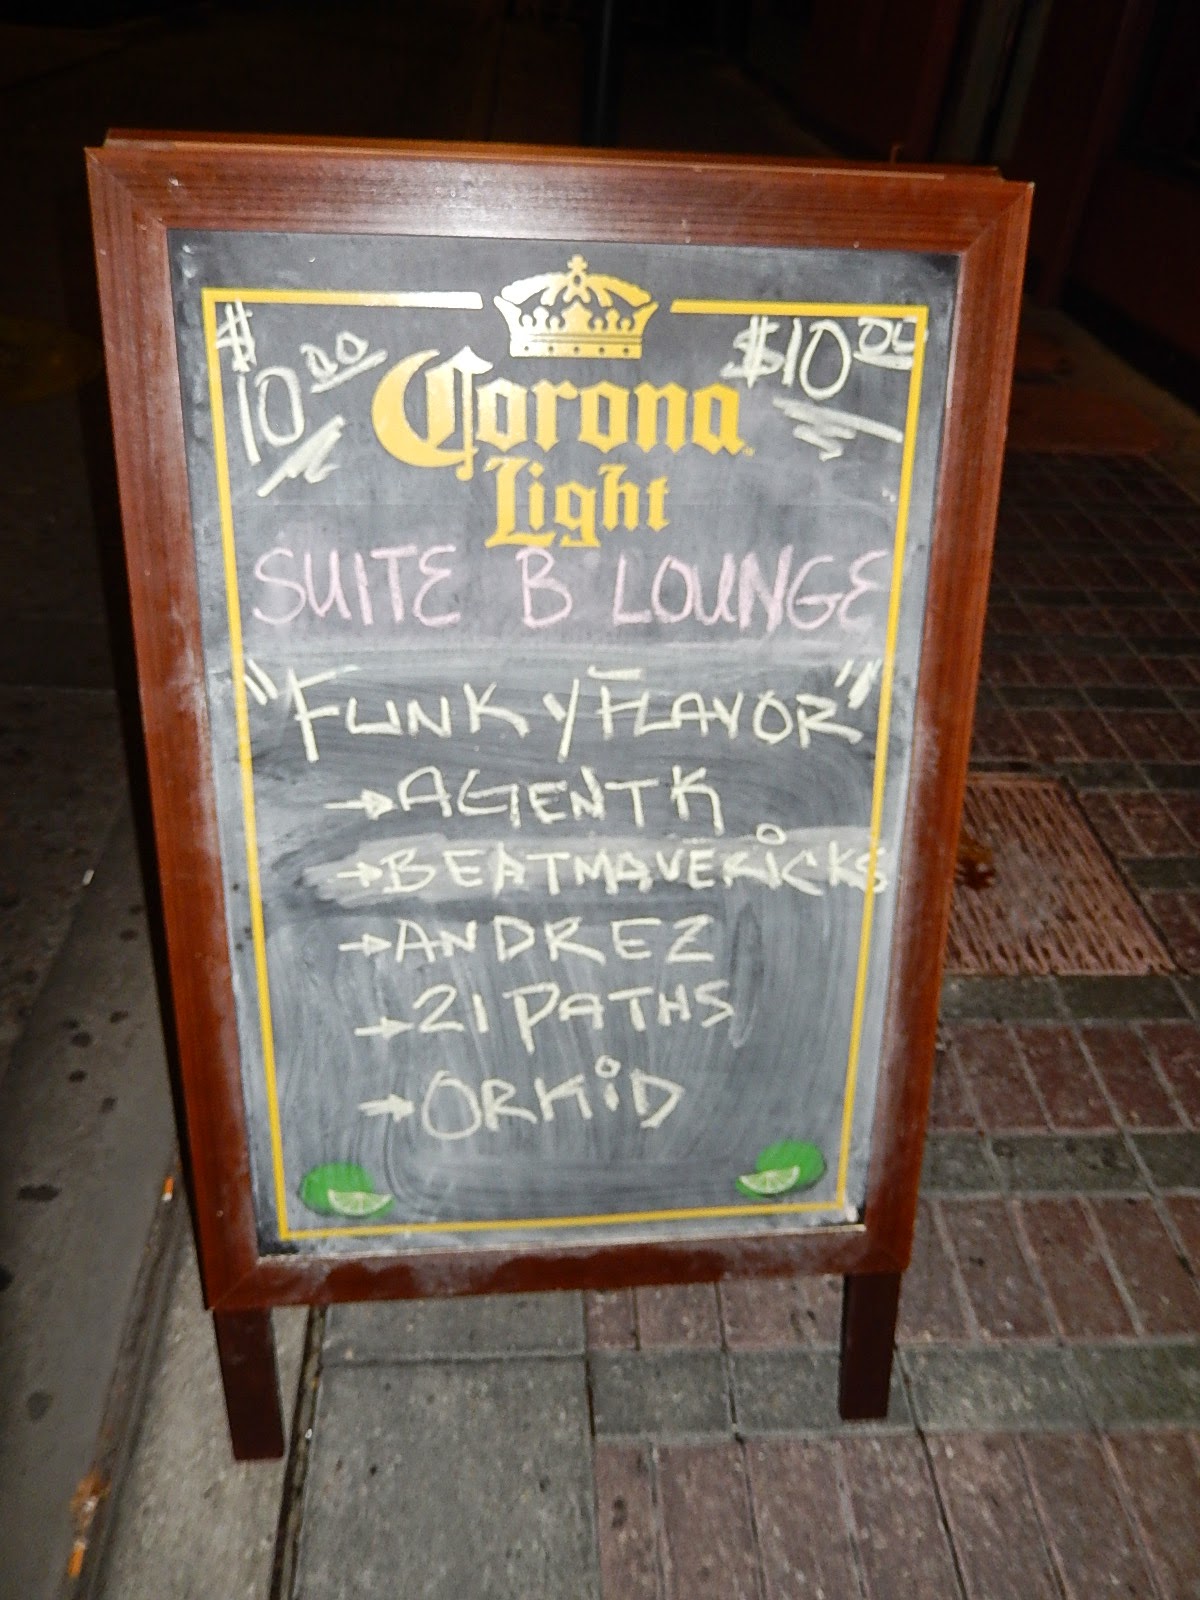 $10.00
$10.00
Corona
Light
SUITE B LOUNGE
"FUNKY FLAVOR"
→AGENT K
→BEATMAVERiCKS
→ANDREZ
→21 PATHS
→ORKiD